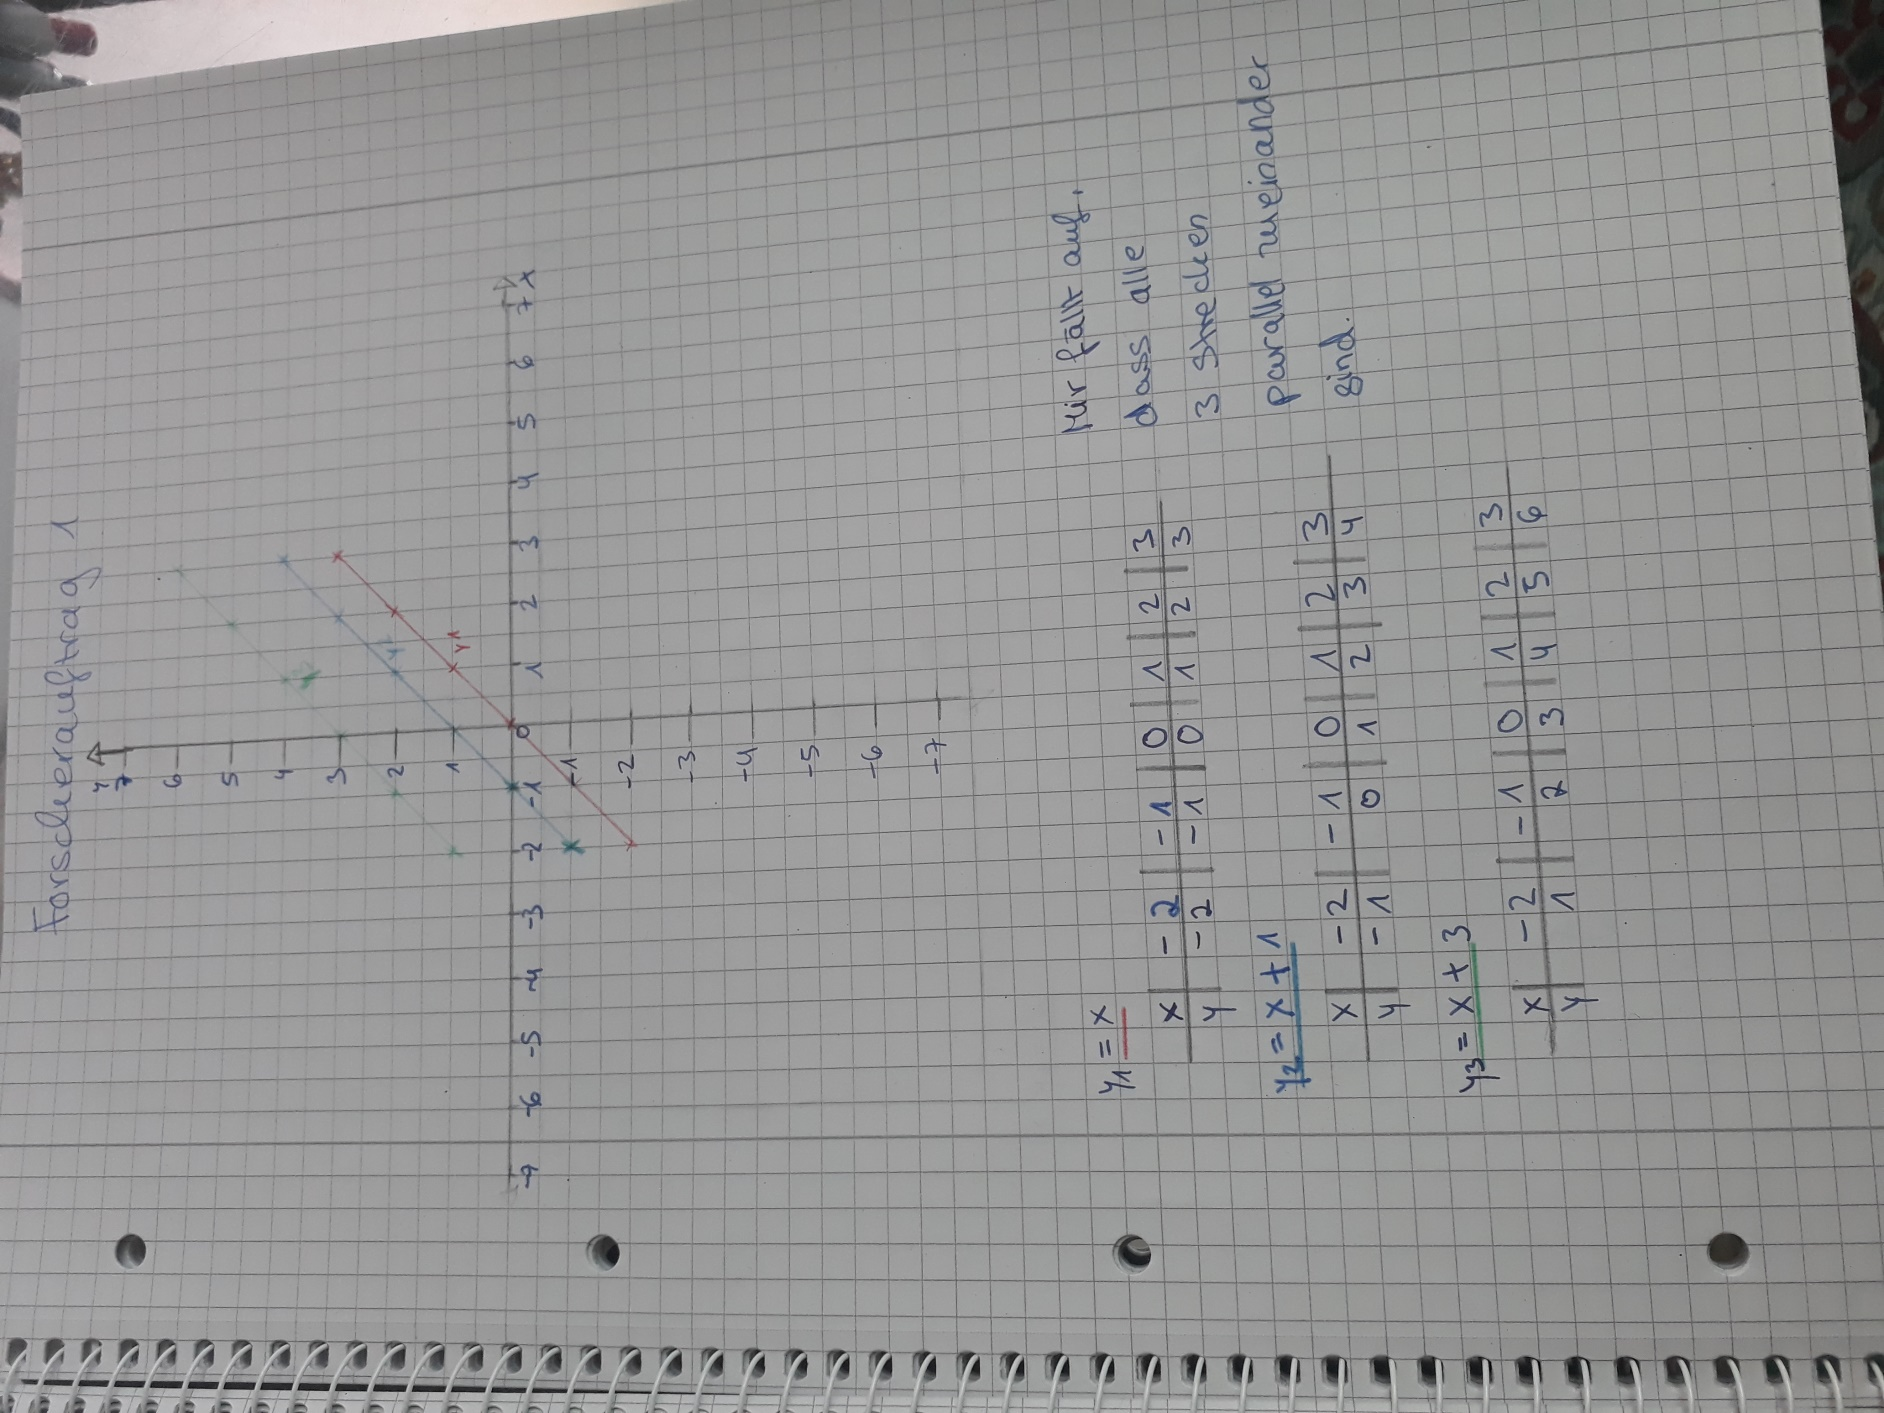 Forscherauftrag 1
y
7
6
5
4
3
2
1
-7 -6 -5 -4 -3 -2 -1 0 1 2 3 4 5 6 7 x
-1
-2
-3
-4
-5
-6
-7
y1
y1 = x
x -2 -1 0 1 2 3
y -2 -1 0 1 2 3
y2 = x + 1
x -2 -1 0 1 2 3
y -1 0 1 2 3 4
y3 = x + 3
x -2 -1 0 1 2 3
y 1 2 3 4 5 6
Mir fällt auf,
dass alle
3 strecken
parallel zueinander
sind.